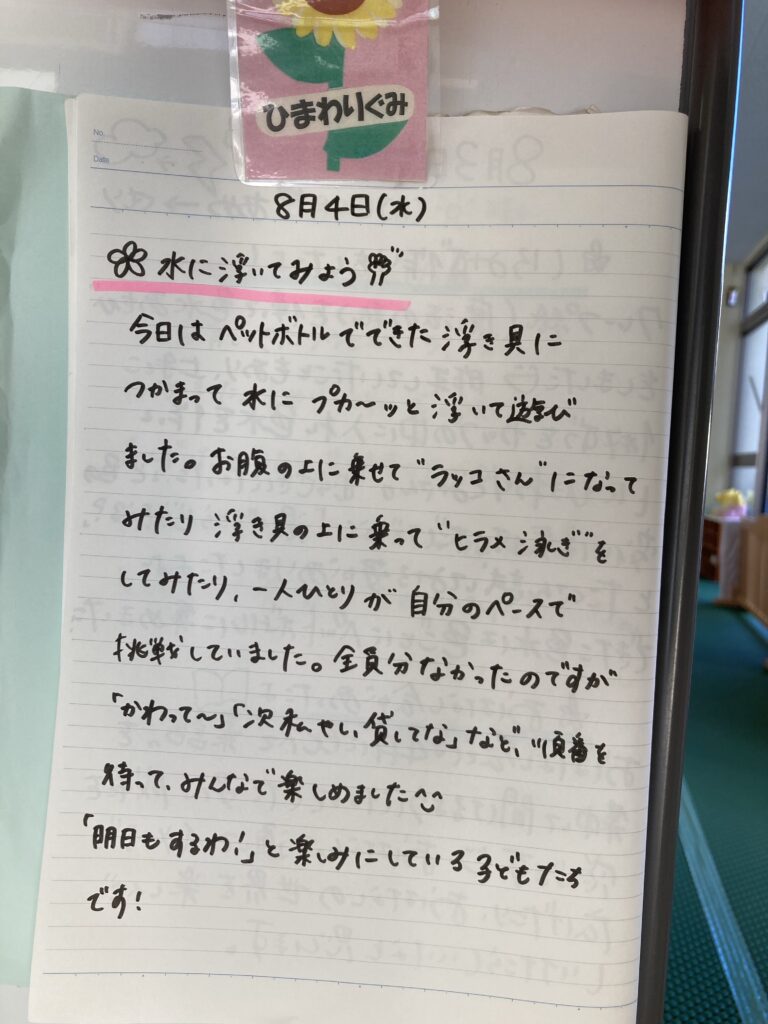 ひまわりぐみ
No.
Date
8月4日(水)
水に浮いてみよう
今日は ペットボトルでできた 浮き具に
つかまって 水に プカ〜ッと 浮いて遊び
ました。お腹の上に乗せて"ラッコさん"になって
みたり 浮き具の上に 乗って"ヒラメ泳ぎ"を
してみたり、一人ひとりが 自分のペースで
挑戦していました。全員分なかったのですが
「かわって〜」「次私やし、貸してな」など、順番を
待って、みんなで楽しめました^^
「明日もするわ!」と楽しみにしている子どもたち
です!